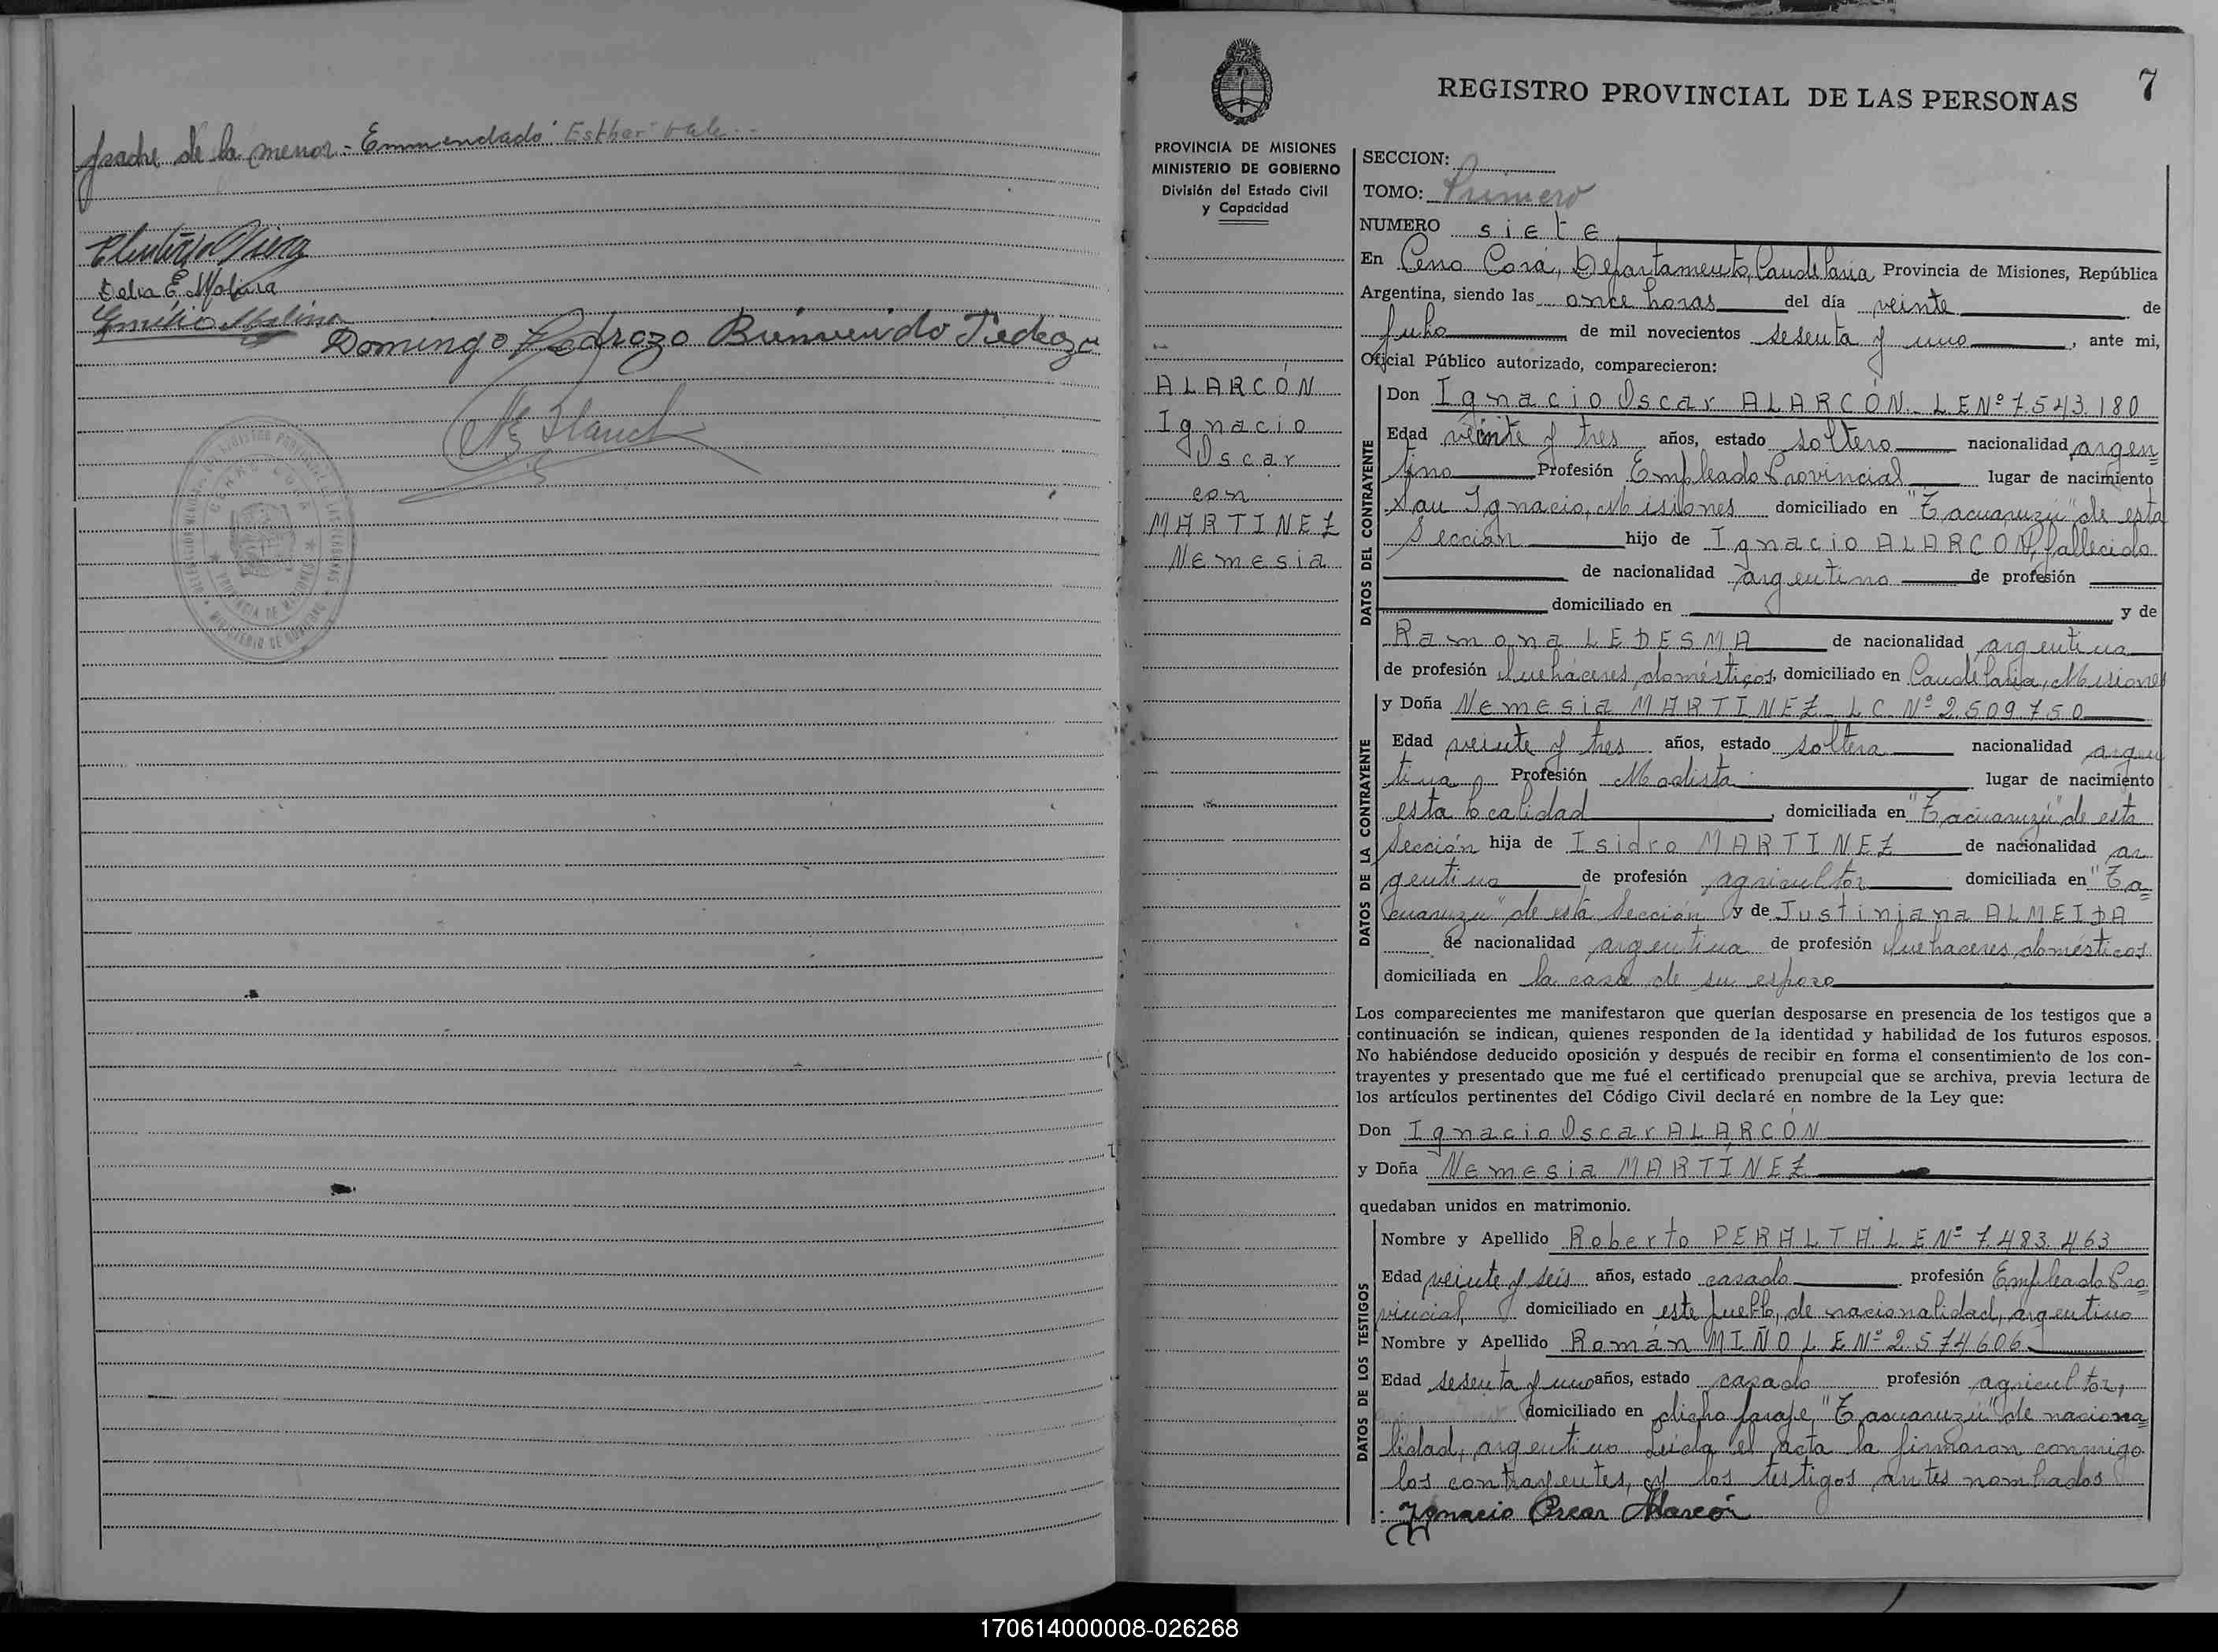 padre de la menor.- Emmendado "Esther" vale.-
Delia E. Molina
Emilio Molina
Domingo Pedrozo Bienvenido Pedrozo
CERRO CORA
7
REGISTRO PROVINCIAL DE LAS PERSONAS
PROVINCIA DE MISIONES
MINISTERIO DE GOBIERNO
División del Estado Civil
y Capacidad
ALARCÓN
Ignacio
Oscar
con
MARTINEZ
Nemesia
SECCION:
TOMO: Primero
NUMERO siete
En Cerro Corá, Departamento, Candelaria Provincia de Misiones, República
Argentina, siendo las once horas del día veinte de
Julio de mil novecientos sesenta y uno, ante mi,
Oficial Público autorizado, comparecieron:
DATOS DEL CONTRAYENTE
Don Ignacio Oscar ALARCÓN - L E Nº 7.543.180
Edad veinte y tres años, estado soltero nacionalidad argen=
tino Profesión Empleado Provincial lugar de nacimiento
San Ignacio, Misiones domiciliado en "Tacuaruzú" de esta
Sección hijo de Ignacio ALARCON, fallecido
de nacionalidad argentino de profesión
domiciliado en y de
Ramona LEDESMA de nacionalidad argentina
de profesión quehaceres domésticos, domiciliado en Candelaria, Misiones
DATOS DE LA CONTRAYENTE
y Doña Nemesia MARTINEZ - L C Nº 2.509.750
Edad veinte y tres años, estado soltera nacionalidad argen
tina Profesión Modista lugar de nacimiento
esta localidad, domiciliada en "Tacuaruzú" de esta
Sección hija de Isidro MARTINEZ de nacionalidad ar
gentino de profesión agricultor domiciliada en "Ta=
cuaruzú" de esta Sección y de Justiniana ALMEIDA
de nacionalidad argentina de profesión quehaceres domésticos
domiciliada en la casa de su esposo
Los comparecientes me manifestaron que querían desposarse en presencia de los testigos que a
continuación se indican, quienes responden de la identidad y habilidad de los futuros esposos.
No habiéndose deducido oposición y después de recibir en forma el consentimiento de los con-
trayentes y presentado que me fué el certificado prenupcial que se archiva, previa lectura de
los artículos pertinentes del Código Civil declaré en nombre de la Ley que:
Don Ignacio Oscar ALARCÓN
y Doña Nemesia MARTÍNEZ
quedaban unidos en matrimonio.
DATOS DE LOS TESTIGOS
Nombre y Apellido Roberto PERALTA. L E Nº 7.483.463
Edad veinte y seis años, estado casado profesión Empleado Pro=
vincial, domiciliado en este pueblo, de nacionalidad, argentino
Nombre y Apellido Román MIÑO L E Nº 2.574606
Edad sesenta y uno años, estado casado profesión agricultor,
domiciliado en dicho paraje, "Tacuaruzú" de naciona=
lidad, argentino Leída el acta la firmaron conmigo
los contrayentes, y los testigos antes nombrados
Ignacio Oscar Alarcón
170614000008-026268